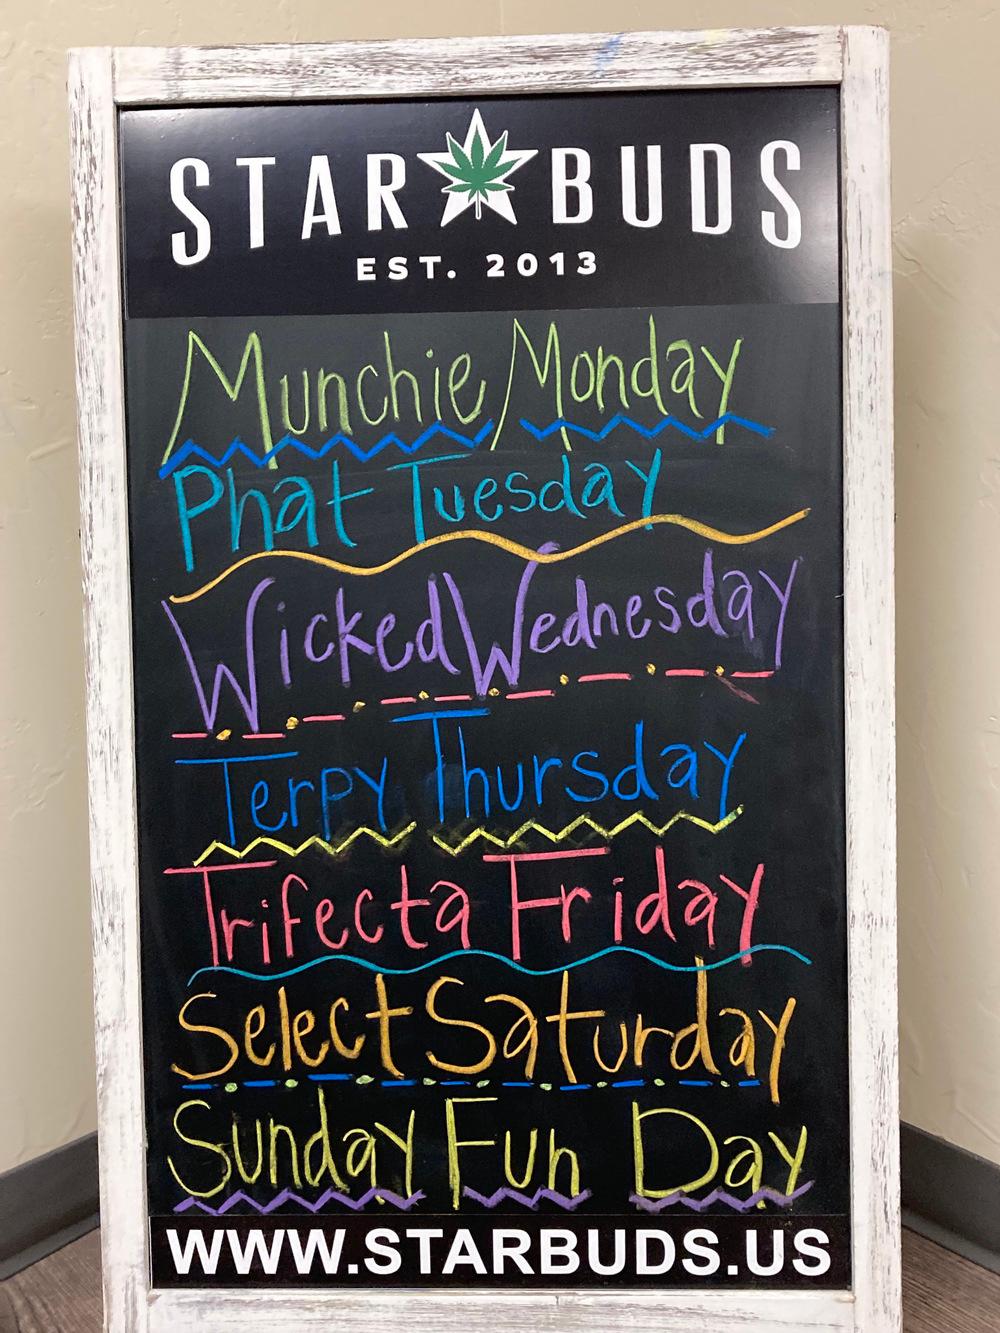 STAR BUDS
EST. 2013
Munchie Monday
Phat Tuesday
Wicked Wednesday
Terpy Thursday
Trifecta Friday
Select Saturday
Sunday Fun Day
WWW.STARBUDS.US